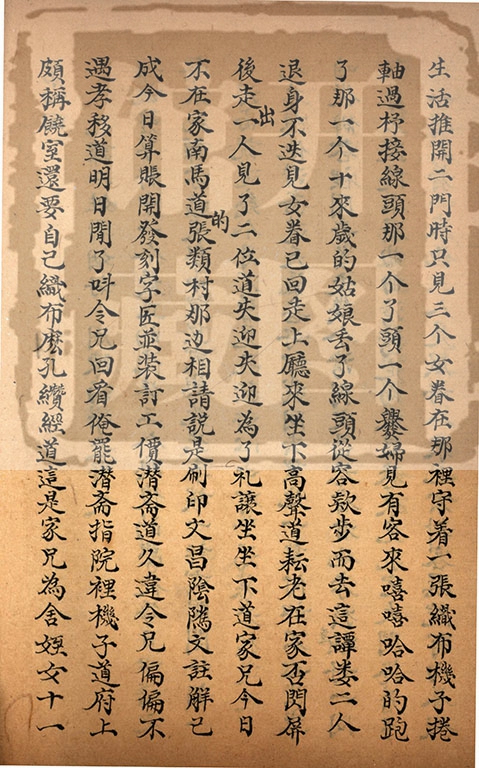 生活推開二門時只見三个女眷在那裡守着一張織布機子捲
軸過杼接線頭那一个丫頭一个爨婦見有客來嘻嘻哈哈的跑
了那一个十來歲的姑娘丢了線頭從容欵步而去這譚婁二人
退身不迭見女眷已回走上廳來坐下高聲道耘老在家否閃屏
後走出一人見了二位道失迎失迎為了礼讓坐坐下道家兄今日
不在家南馬道的張類村那边相請説是刷印文昌陰隲文註解已
成今日算賬開發刻字匠並装訂工價潜斋道久違令兄偏偏不
遇孝移道明日閒了呌令兄回看俺罷潜斋指院裡機子道府上
頗稱饒室還要自己織布麽孔纘經道這是家兄為舍姪女十一